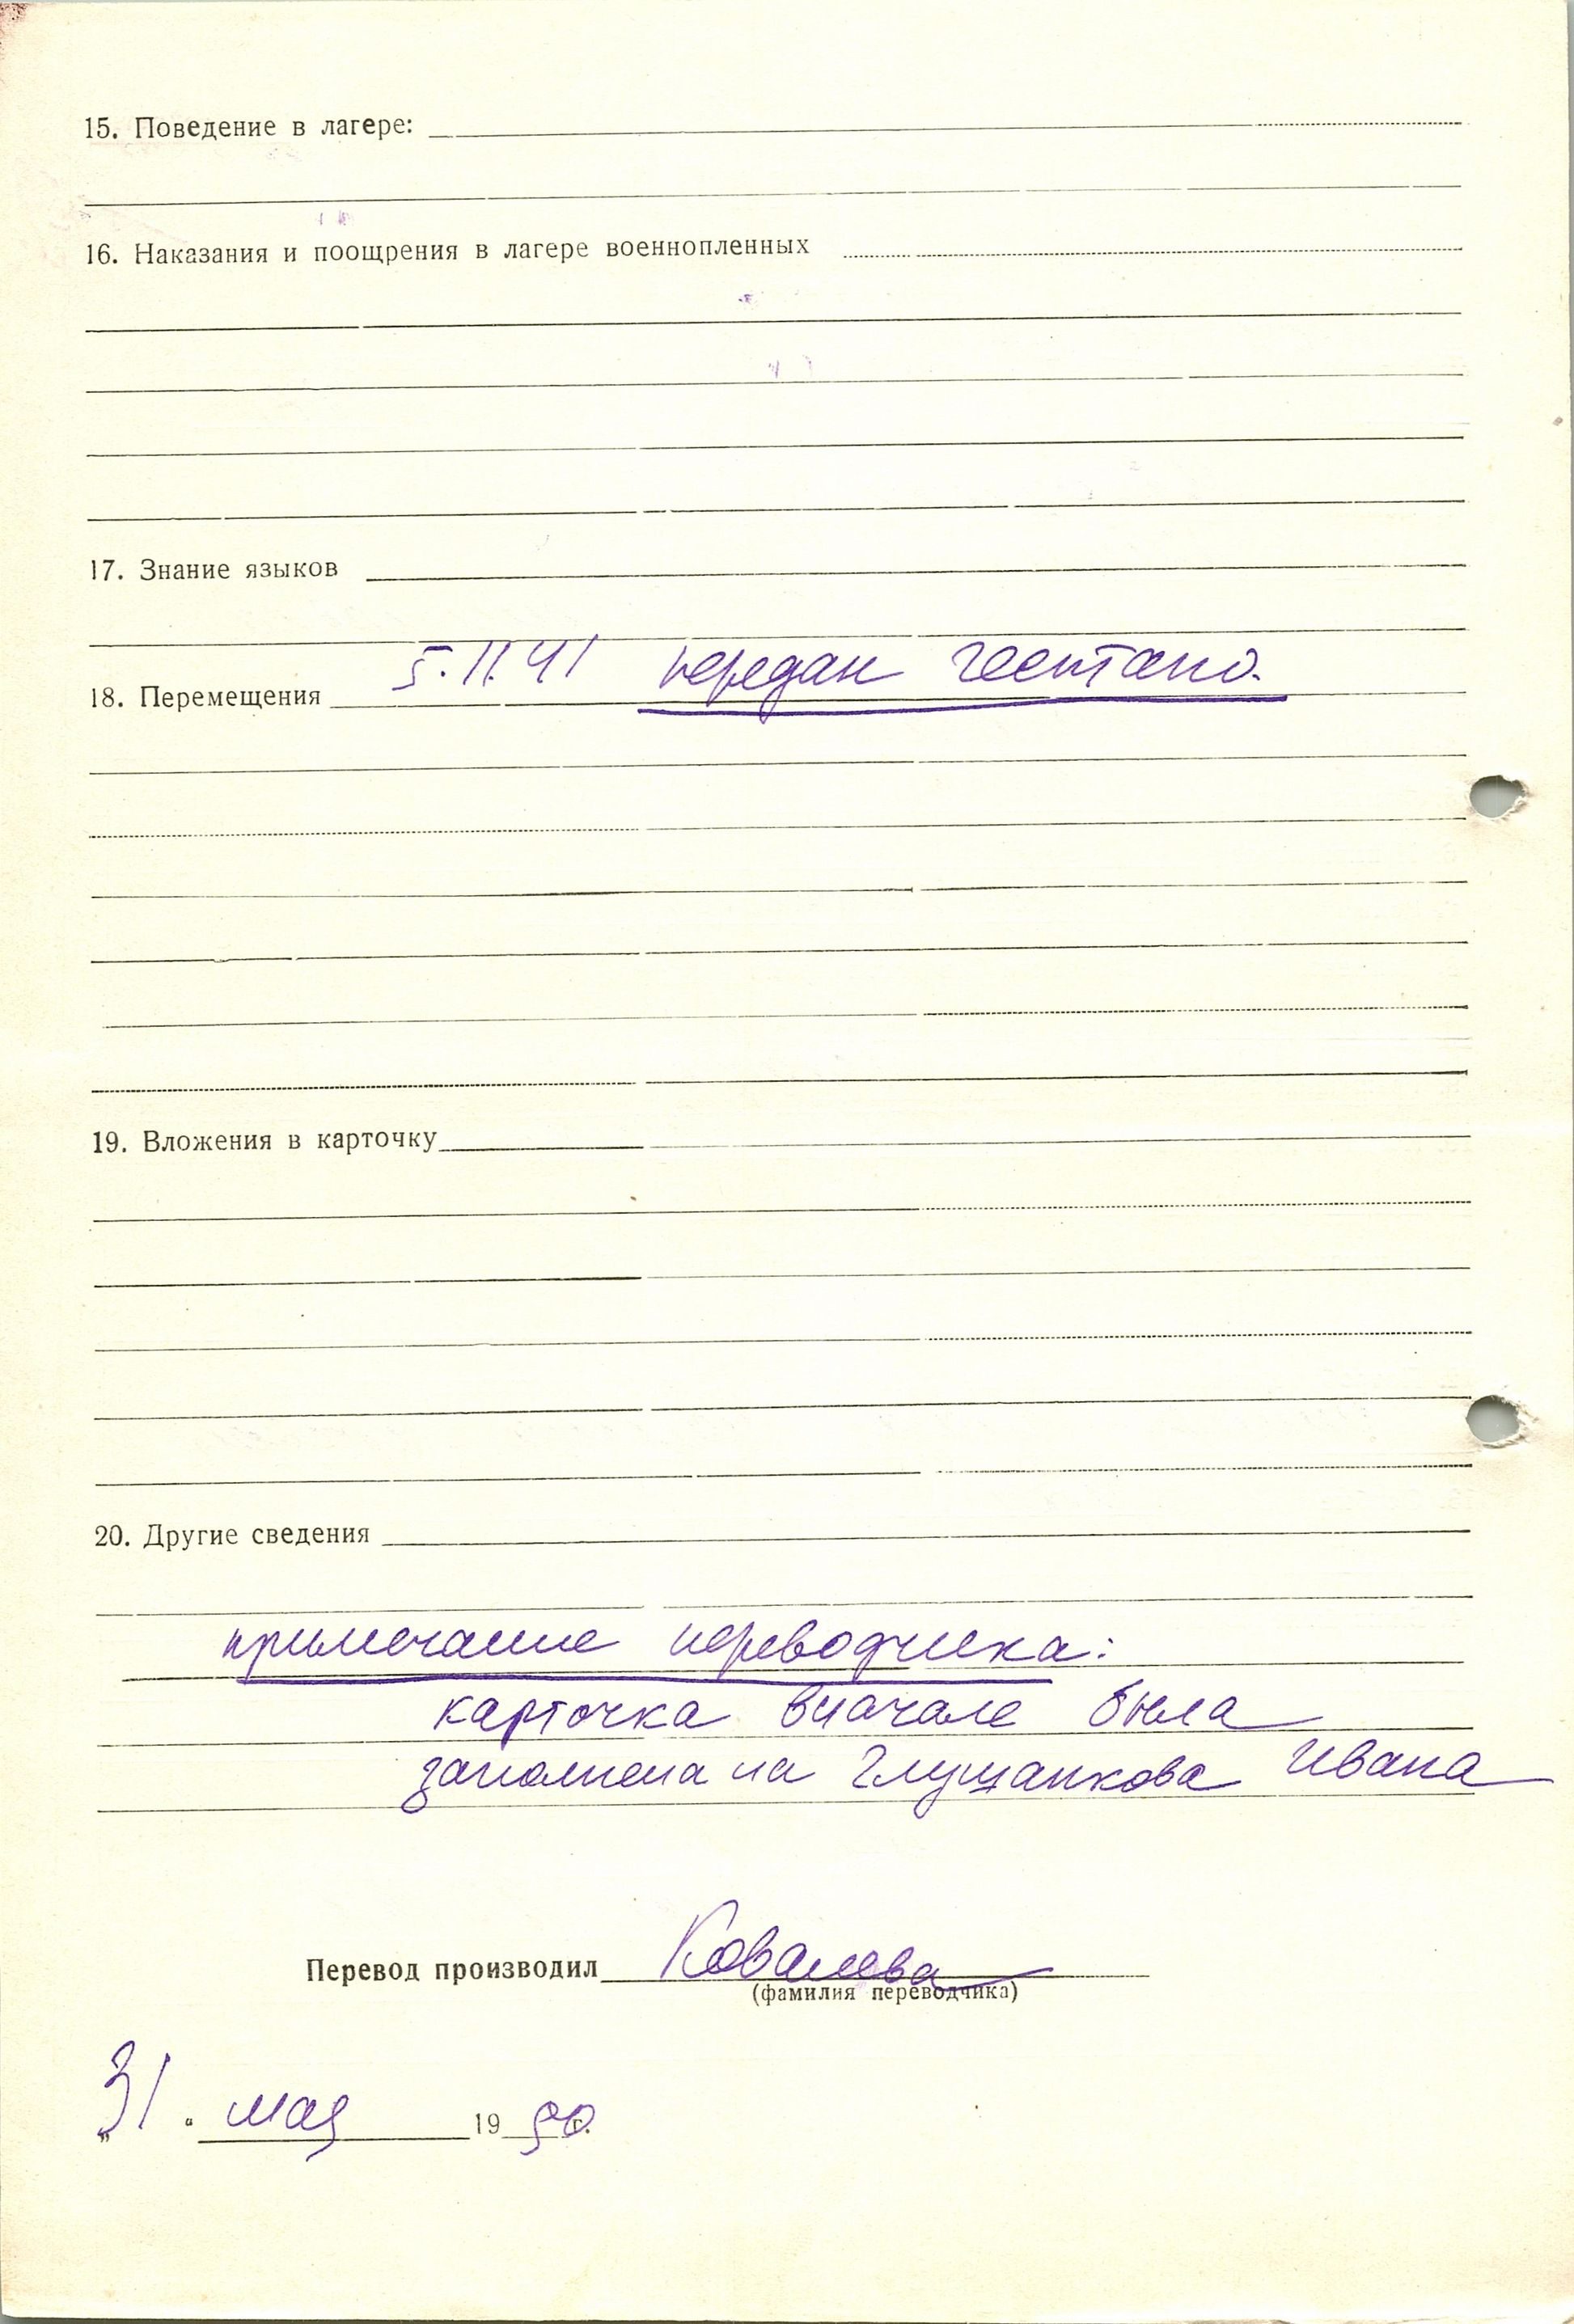 15. Поведение в лагере:
16. Наказания и поощрения в лагере военнопленных
17. Знание языков
18. Перемещения 5.11.41 передан гестапо.
19. Вложения в карточку
20. Другие сведения
примечание переводчика:
карточка вначале была
заполнена на Глущанкова Ивана
Перевод производил Ковалева
(фамилия переводчика)
„31“ мая 1990 г.